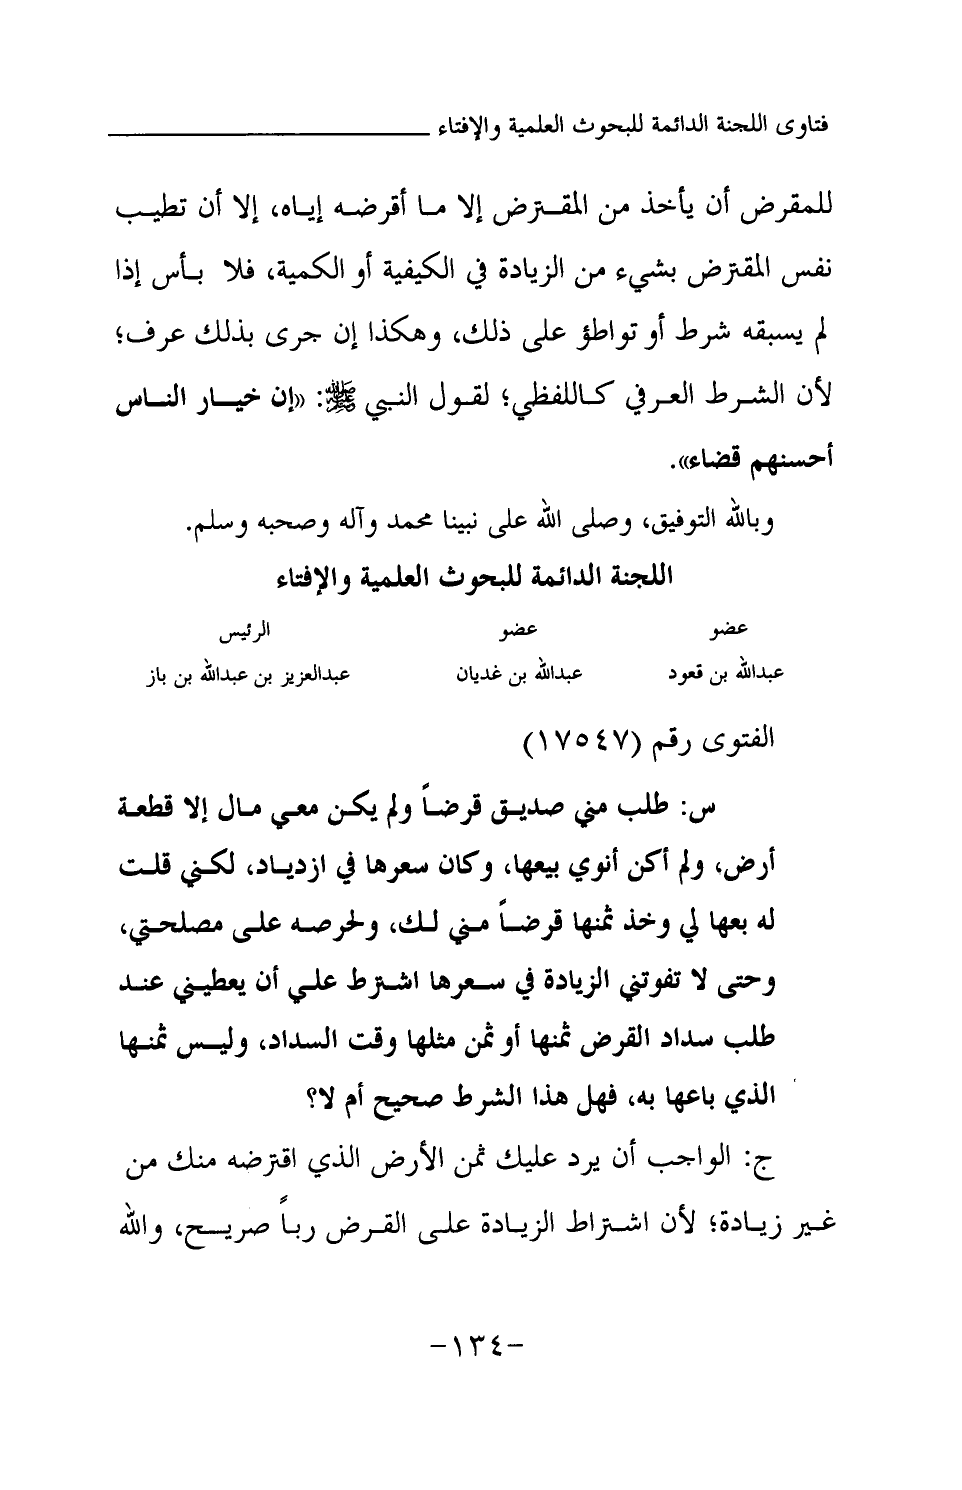 فتاوى اللجنة الدائمة للبحوث العلمية والإفتاء
للمقرض أن يأخذ من المقترض إلا ما أقرضه إياه، إلا أن تطيب
نفس المقترض بشيء من الزيادة في الكيفية أو الكمية، فلا بأس إذا
لم يسبقه شرط أو تواطؤ على ذلك، وهكذا إن جرى بذلك عرف؛
لأن الشرط العرفي كاللفظي؛ لقول النبي ﷺ: «إن خيار الناس
أحسنهم قضاء».
وبالله التوفيق، وصلى الله على نبينا محمد وآله وصحبه وسلم.
اللجنة الدائمة للبحوث العلمية والإفتاء
عضو عضو الرئيس
عبدالله بن قعود عبدالله بن غديان عبدالعزيز بن عبدالله بن باز
الفتوى رقم (١٧٥٤٧)
س: طلب مني صديق قرضاً ولم يكن معي مال إلا قطعة
أرض، ولم أكن أنوي بيعها، وكان سعرها في ازدياد، لكني قلت
له بعها لي وخذ ثمنها قرضاً مني لك، ولحرصه على مصلحتي،
وحتى لا تفوتني الزيادة في سعرها اشترط علي أن يعطيني عند
طلب سداد القرض ثمنها أو ثمن مثلها وقت السداد، وليس ثمنها
الذي باعها به، فهل هذا الشرط صحيح أم لا؟
ج: الواجب أن يرد عليك ثمن الأرض الذي اقترضه منك من
غير زيادة؛ لأن اشتراط الزيادة على القرض رباً صريح، والله
-١٣٤-